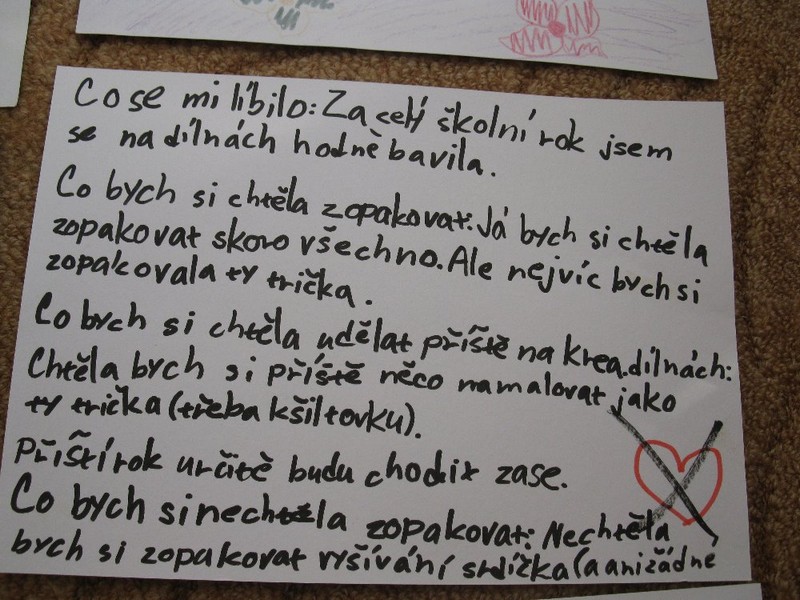 Co se mi líbilo: Za celý školní rok jsem
se na dílnách hodně bavila.
Co bych si chtěla zopakovat: Já bych si chtěla
zopakovat skoro všechno. Ale nejvíc bych si
zopakovala ty trička.
Co bych si chtěla udělat příště na krea.dílnách:
Chtěla bych si příště něco namalovat jako
ty trička (třeba kšiltovku).
Příští rok určitě budu chodit zase.
Co bych si nechtěla zopakovat: Nechtěla
bych si zopakovat vyšívání srdíčka (a ani žádné